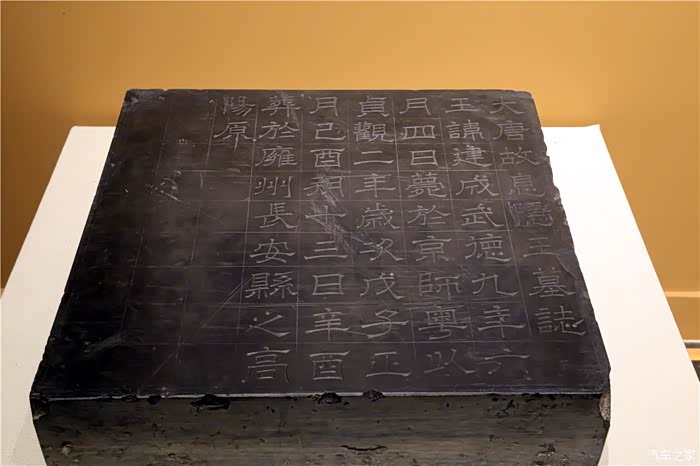 大唐故息隱王墓誌
王諱建成武德九年六
月四日薨於京師粵以
貞觀二年歲次戊子正
月己酉朔十三日辛酉
葬於雍州長安縣之高
陽原
汽车之家